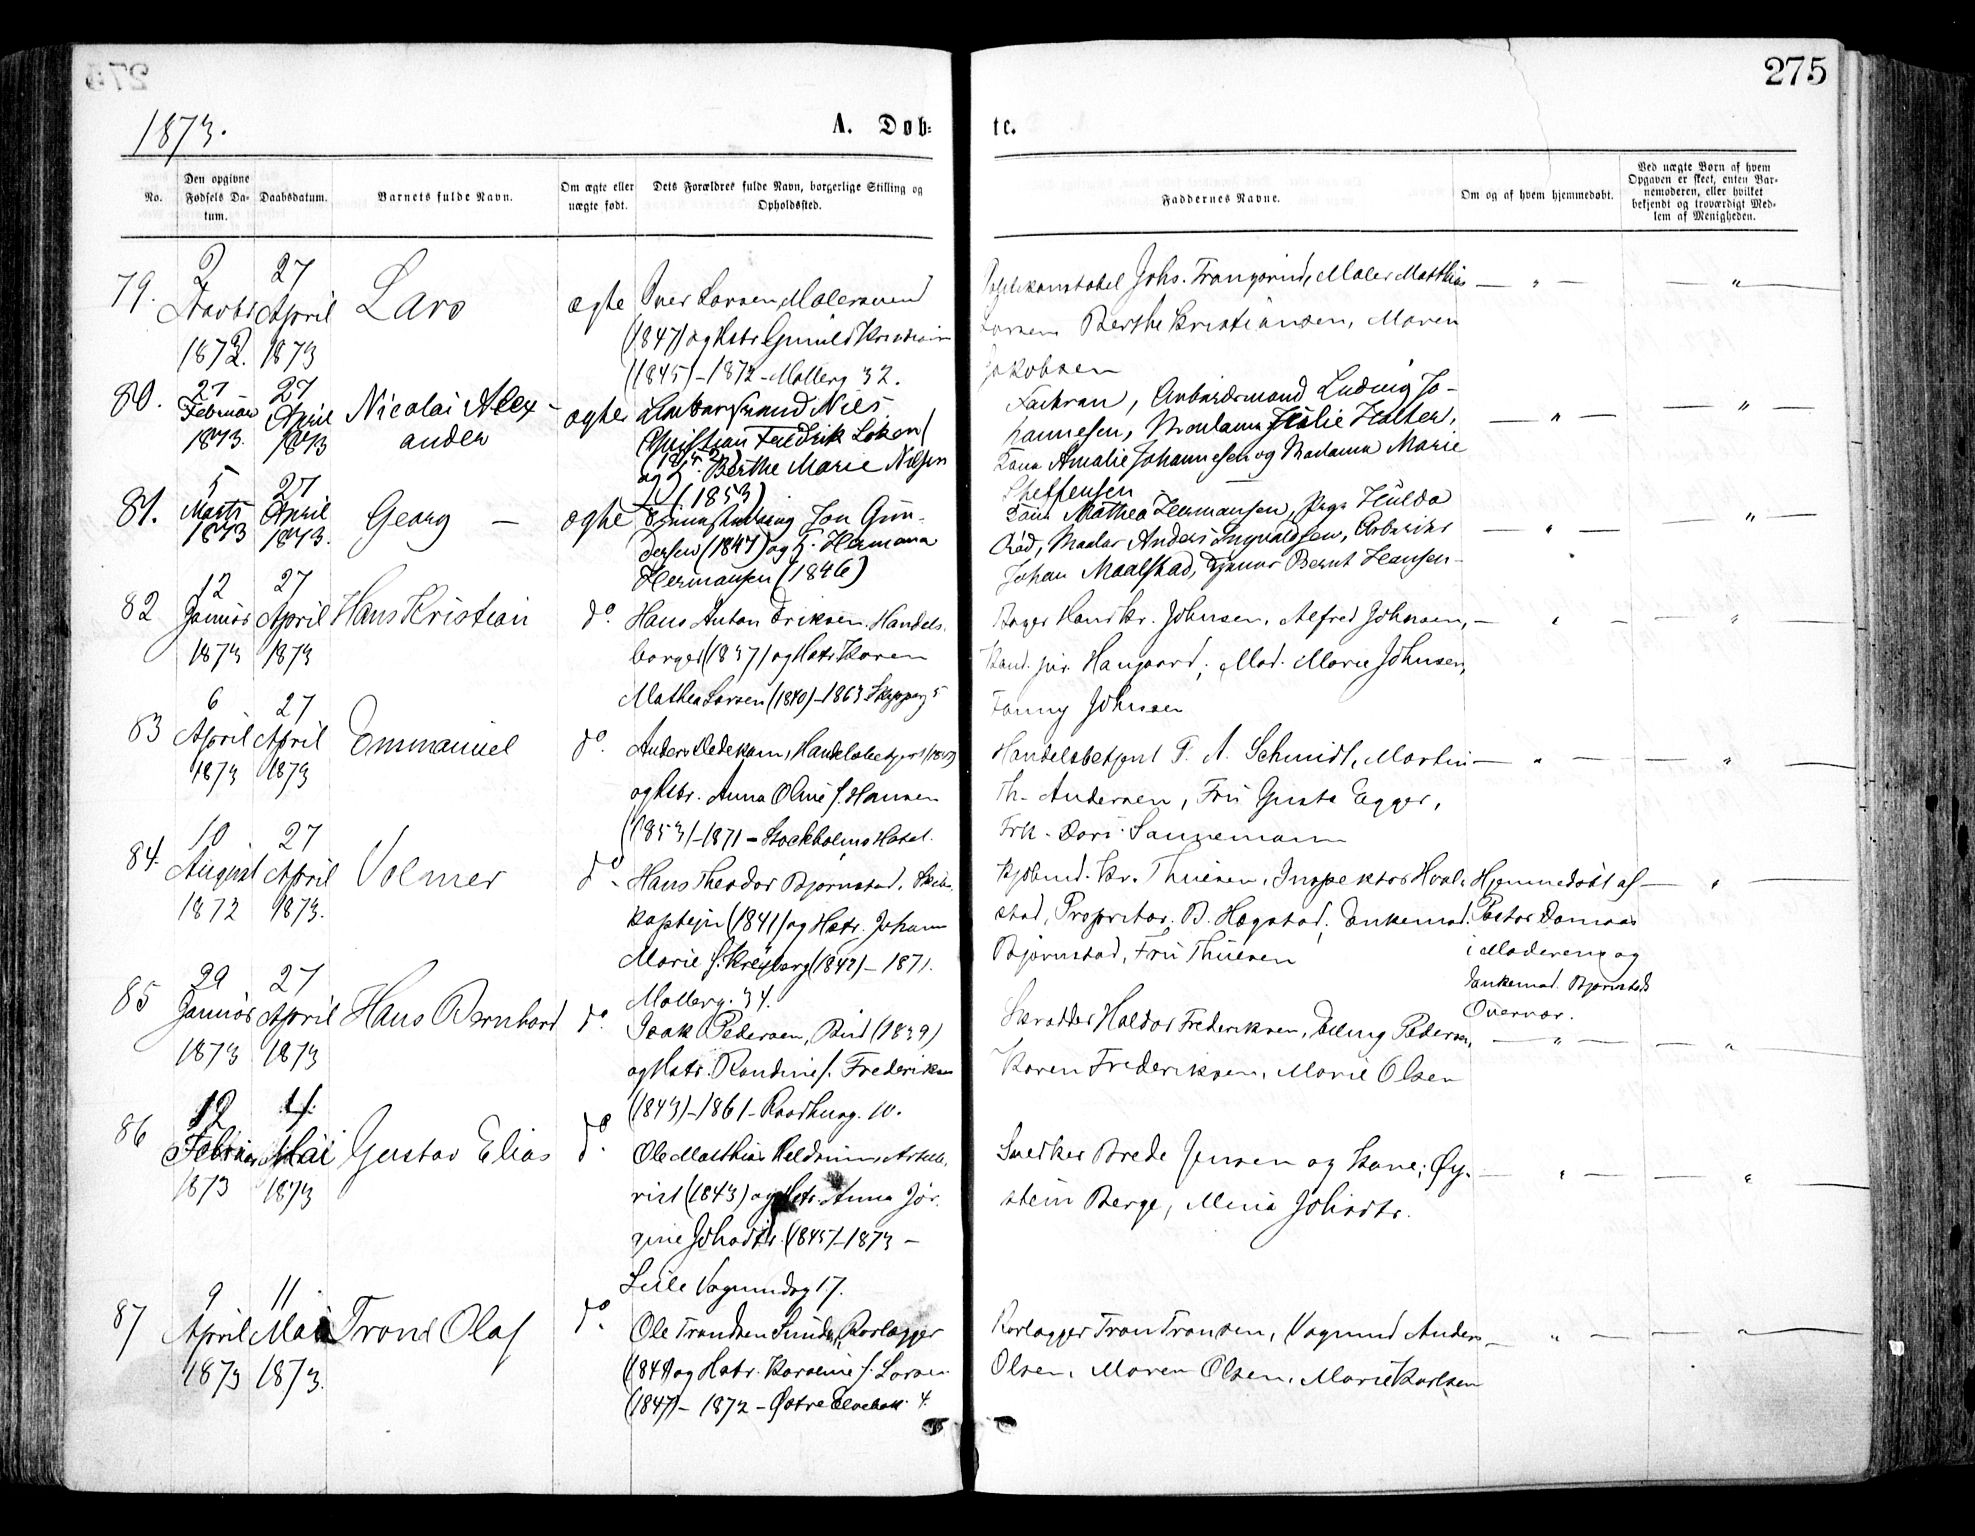 275
1873.
A. Døb-
te.
No.
Den opgivne Fødsels Da-
tum.
Daabsdatum.
Barnets fulde Navn.
Om ægte eller
uægte født.
Dets Forældres fulde Navn, borgerlige Stilling og
Opholdssted.
Faddernes Navne.
Om og af hvem hjemmedøbt.
Ved uægte Børn af hvem
Opgaven er skeet, enten Bar-
nemoderen, eller hvilket
bekjendt og troværdigt Med-
lem af Menigheden.
79. 2 27
April Lars ægte Iver Larsen, Malersvend
1872. 1873 (1847) og Hstr. Gunild
(1845) - 1872 - Møllerg 32.
Johs. Maler Matthias
Larsen Berthe Kristiansen, Maren
Jakobsen
80. 27 27
Februar April Nicolai Alex-
1873. 1873 ander
ægte Nils
Christian Fredrik Løken
og H. Berthe Marie Nilsen
(1853)
Faderen, Arbeidsmand Ludvig Jo-
hannesen, Madame Julie Halter,
Kone Amalie Johannesen og Madame Marie
Steffensen
81. 5 27
Marts April Georg -
1873 1873.
ægte Jon Gun-
dersen (1847) og H. Hermana
Hermansen (1846)
Kone Mathea Hermansen, Pige Hulda
Anders Ingvaldsen, Arbeider
Johan Bernt Hansen
82 12 27
Januar April Hans Kristian
1873 1873
do. Hans Anton Eriksen. Handels-
borger (1837) og Hstr. Karen
Mathea Larsen (1840) - 1863 Skipperg 5
Bager Hans Kr. Johnsen, Alfred Johnsen,
Kand. jur. Haugaard, Mad. Marie Johnsen,
Fanny Johnsen
83 6 27
April April Emmanuel
1873 1873
do. Anders Dedekam, Handelsbetjent
og Hstr. Anna Oline f. Hansen
(1853) - 1871 - Stockholms Hotel.
Handelsbetjent F. A. Schmidt, Martin
Th. Andersen, Fru Gusta Egger,
Frk. Dori Sannemann
84. 10 27
August April Volmer
1872 1873.
do. Hans Theodor Bjørnstad, Skibs-
kaptejn (1841) og Hstr. Johane
Marie f. Kreyberg (1842) - 1871.
Møllerg. 34.
Kjøbmd. Kr. Thuesen, Inspektør Hval-
stad, Propritær B. Hægstad, Enkemad.
Bjørnstad, Fru Thuesen
Hjemmedøbt af
Pastor
i
Enkemad. Bjørnstads
Overvær.
85 29 27
Januar April Hans Bernhard
1873 1873
do. Isak Pedersen, Bud (1839)
og Hstr. Randine f. Frederiksen
(1843) - 1861 - Raadhusg. 10.
Skrædder Haldor Frederiksen, Elling Pedersen,
Karen Frederiksen, Marie Olsen
86 12 4
Februar Mai Gustav Elias
1873 1873
do. Ole Matthias
(1843) og Hstr. Anna Jør-
gine Johsdtr. (1845) - 1873 -
Lille Vognmdsg 17.
Snedker Brede Jensen og Kone, Øy-
stein Berge, Mina Johsdtr.
87 9 11
April Mai Trond Olaf
1873 1873.
do. Ole Trondsen Sunde, Rørlægger
og Hstr. Karoline f. Larsen
(1847) - 1872 - Østre Elvebak. 4.
Rørlægger Tron Tronsen, Vognmd Anders
Olsen, Maren Olsen, Marie Karlsen